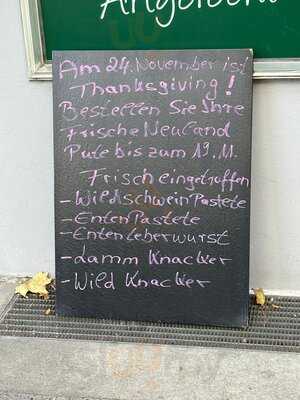 Angebote
Am 24. November ist
Thanksgiving!
Bestellen Sie Ihre
Frische Neuland
Pute bis zum 19.11.
Frisch eingetroffen
- Wildschwein Pastete
- Enten Pastete
- Entenleberwurst
- Lamm Knacker
- Wild Knacker